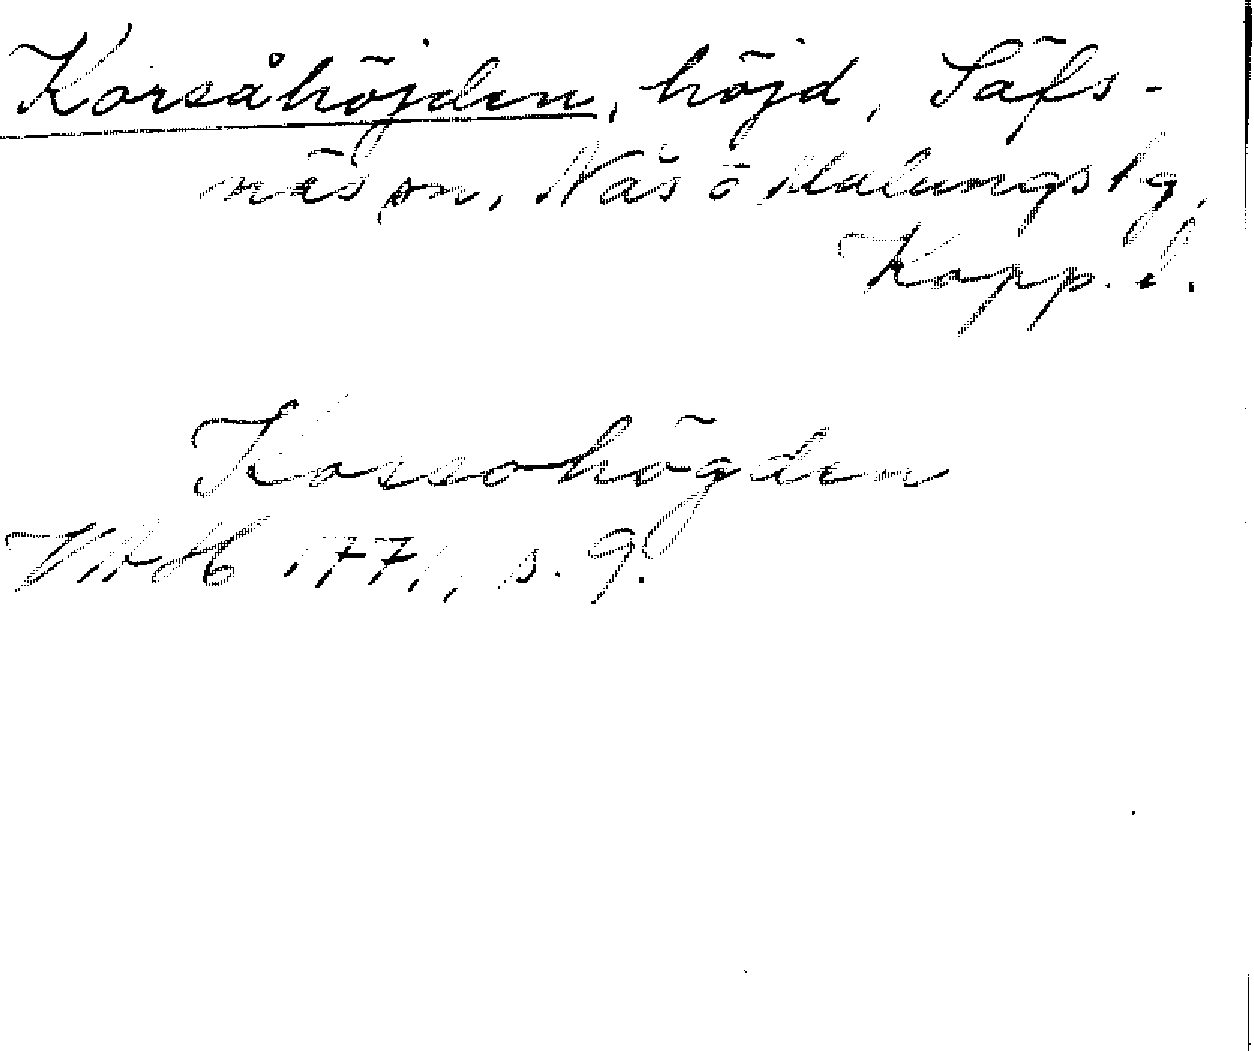 Korsåhöjden, höjd, Säfs-
näs sn, Nås o Malungs tg,
Kopp. l.
Korsohögden
VAH 1771, s. 9.